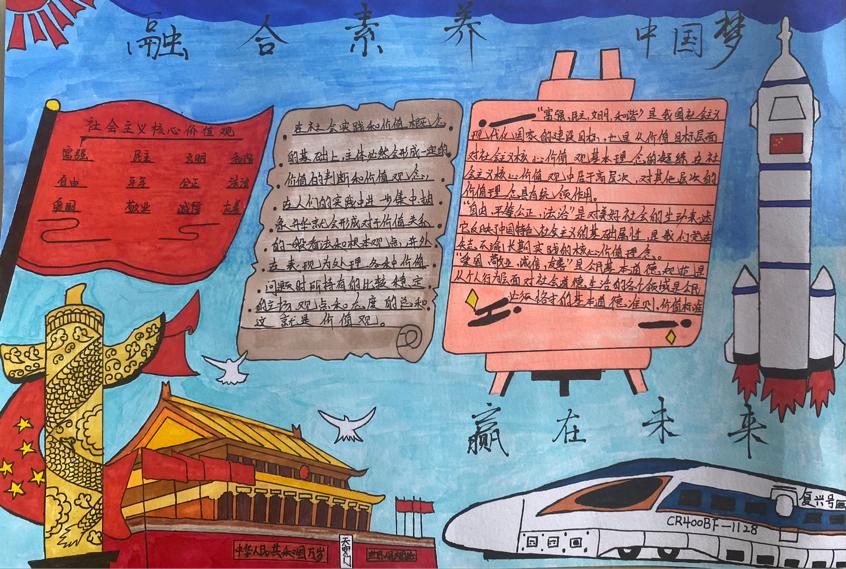 融合素养 中国梦
社会主义核心价值观
富强 民主 文明 和谐
自由 平等 公正 法治
爱国 敬业 诚信 友善
在社会实践和价值概念
的基础上,主体必然会形成一定的
价值的判断和价值观念,
在人们的实践中进一步集中抽
象升华就会形成对于价值关系
的一般看法和根本观点,并外
在表现为处理各种价值
问题时所持有的比较稳定
的立场观点和态度的总和
这就是价值观。
“富强、民主、文明、和谐”是我国社会主义
现代化国家的建设目标,也是从价值目标层面
对社会主义核心价值观基本理念的凝练,在社
会主义核心价值观中居于最高层次,对其他层次的
价值理念具有统领作用。
“自由、平等、公正、法治”是对美好社会的生动表述
它反映中国特色社会主义的基础属性,是我们党
不渝、长期实践的核心价值理念。
“爱国、敬业、诚信、友善”是公民基本道德规范,是
从个人行为层面对社会道德生活的各个领域,是公民
必须恪守的基本道德准则,价值标准
赢在未来
中华人民共和国万岁
天安门
复兴号
CR400BF-1128